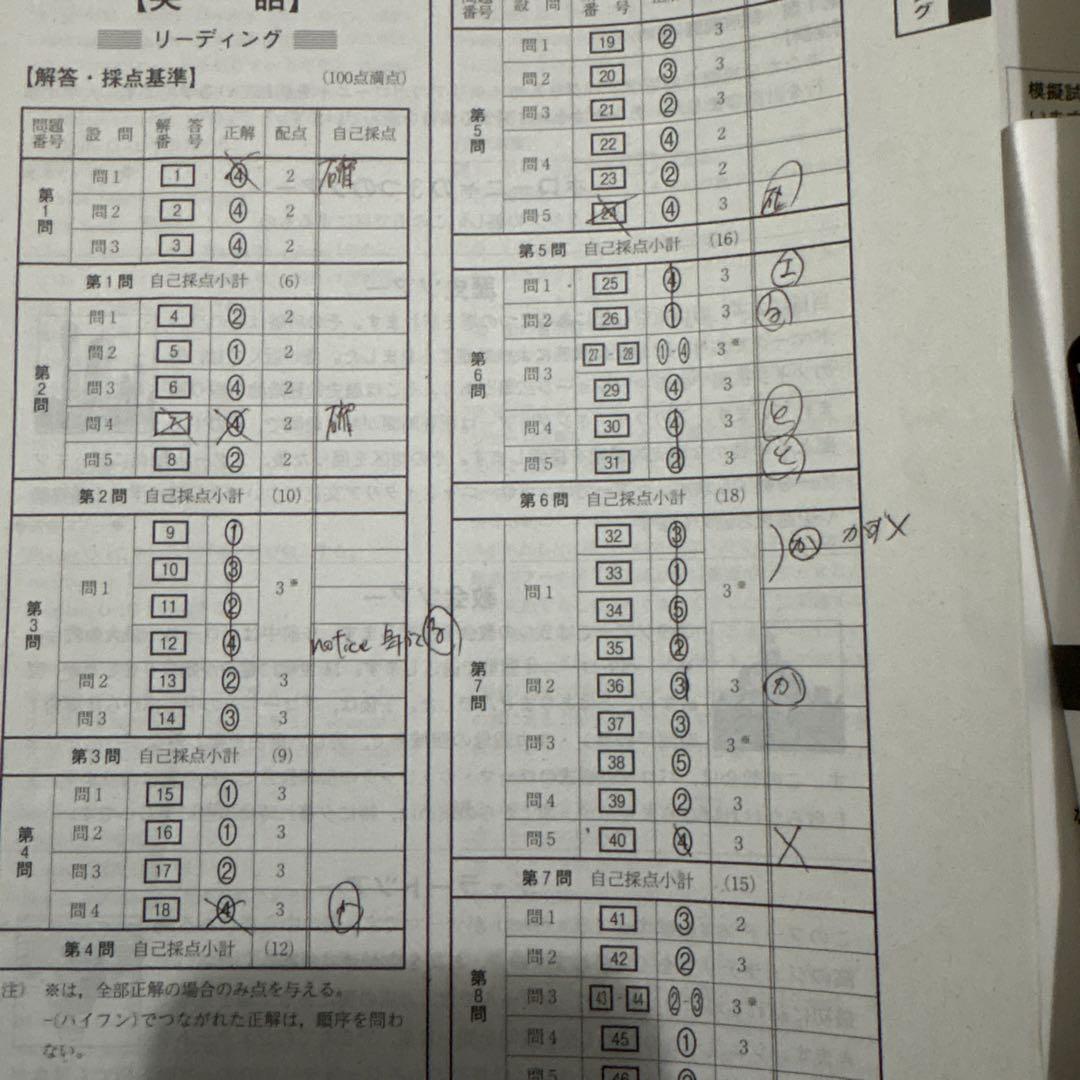 【英 語】
リーディング
【解答・採点基準】 (100点満点)
問題番号 設問 解答番号 正解 配点 自己採点
第1問
問1 1 ④ 2 確
問2 2 ④ 2
問3 3 ④ 2
第1問 自己採点小計 (6)
第2問
問1 4 ② 2
問2 5 ① 2
問3 6 ④ 2
問4 7 ④ 2 確
問5 8 ② 2
第2問 自己採点小計 (10)
第3問
問1 9 ① 3※
10 ③
11 ②
12 ④ notice
問2 13 ② 3
問3 14 ③ 3
第3問 自己採点小計 (9)
第4問
問1 15 ① 3
問2 16 ① 3
問3 17 ② 3
問4 18 ④ 3
第4問 自己採点小計 (12)
注) ※は，全部正解の場合のみ点を与える。
-(ハイフン)でつながれた正解は，順序を問わ
ない。
問題番号 設問 番号
第5問
問1 19 ② 3
問2 20 ③ 3
問3 21 ② 3
問4 22 ④ 2
23 ② 2
問5 24 ④ 3
第5問 自己採点小計 (16)
第6問
問1 25 ④ 3
問2 26 ① 3
問3 27 - 28 ①-④ 3※
29 ④ 3
問4 30 ④ 3
問5 31 ② 3
第6問 自己採点小計 (18)
第7問
問1 32 ③ 3※ か
33 ①
34 ⑤
35 ②
問2 36 ③ 3 か
問3 37 ③ 3※
38 ⑤
問4 39 ② 3
問5 40 ④ 3 X
第7問 自己採点小計 (15)
第8問
問1 41 ③ 2
問2 42 ② 3
問3 43 - 44 ②-③ 3※
問4 45 ① 3
問5 46
グ
模擬試